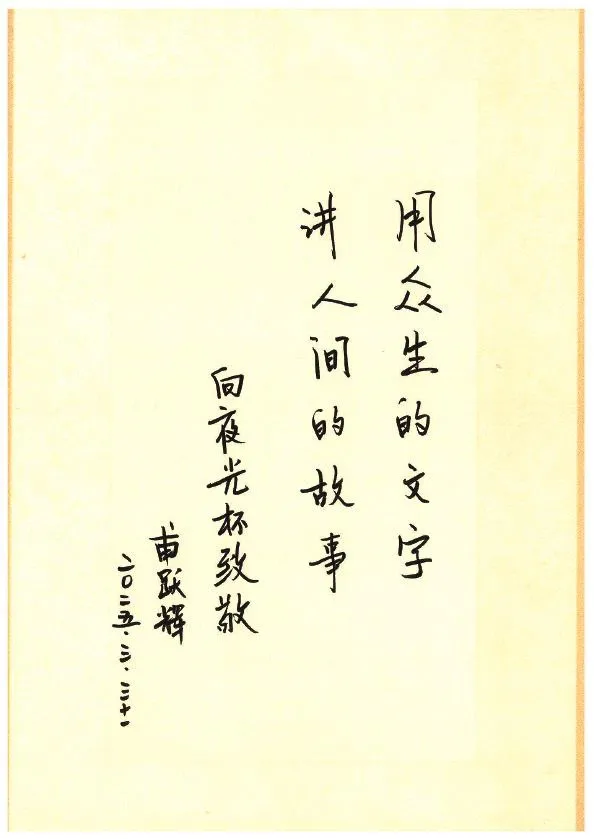 用众生的文字
讲人间的故事
向夜光杯致敬
甫跃辉
二〇二五.三.二十一